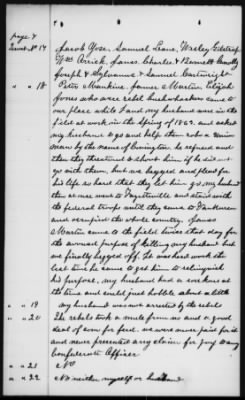 page 4
Intert. No 17 Jacob Yose, Samuel Leane, Wesley Gilstrap
Wm Orrick, James, Charles & Bennett Connelly
Joseph & Sylvanus & Samuel Cartwright
" " 18 Peter Mankins, James Martin, Elijah
Jones who were rebel bushwhackers came to
our place while I and my husband were in the
field at work in the spring of 1863. and asked
my husband to go and help them rob a Union
man by the name of Covington he refused and
then they threatened to shoot him if he did not
go with them, but we begged and plead for
his life so hard that they let him go, my husband
then or soon went to Fayetteville and staid with
the federal troops until they came to Van Buren
and occupied the whole country. James
Martin came to the field twice that day for
the avowed purpose of killing my husband but
we finally begged off. It was hard work the
last time he came to get him to relinquish
his purpose, my husband had a
at the time and could just hobble about a little
" " 19 my husband was not arrested by the rebels
" " 20 The rebels took a mule from us and a good
deal of corn for feed. we were never paid for it
and never presented any claim for pay to any
Confederate Officer
" " 21 No
" " 22 No neither myself or husband